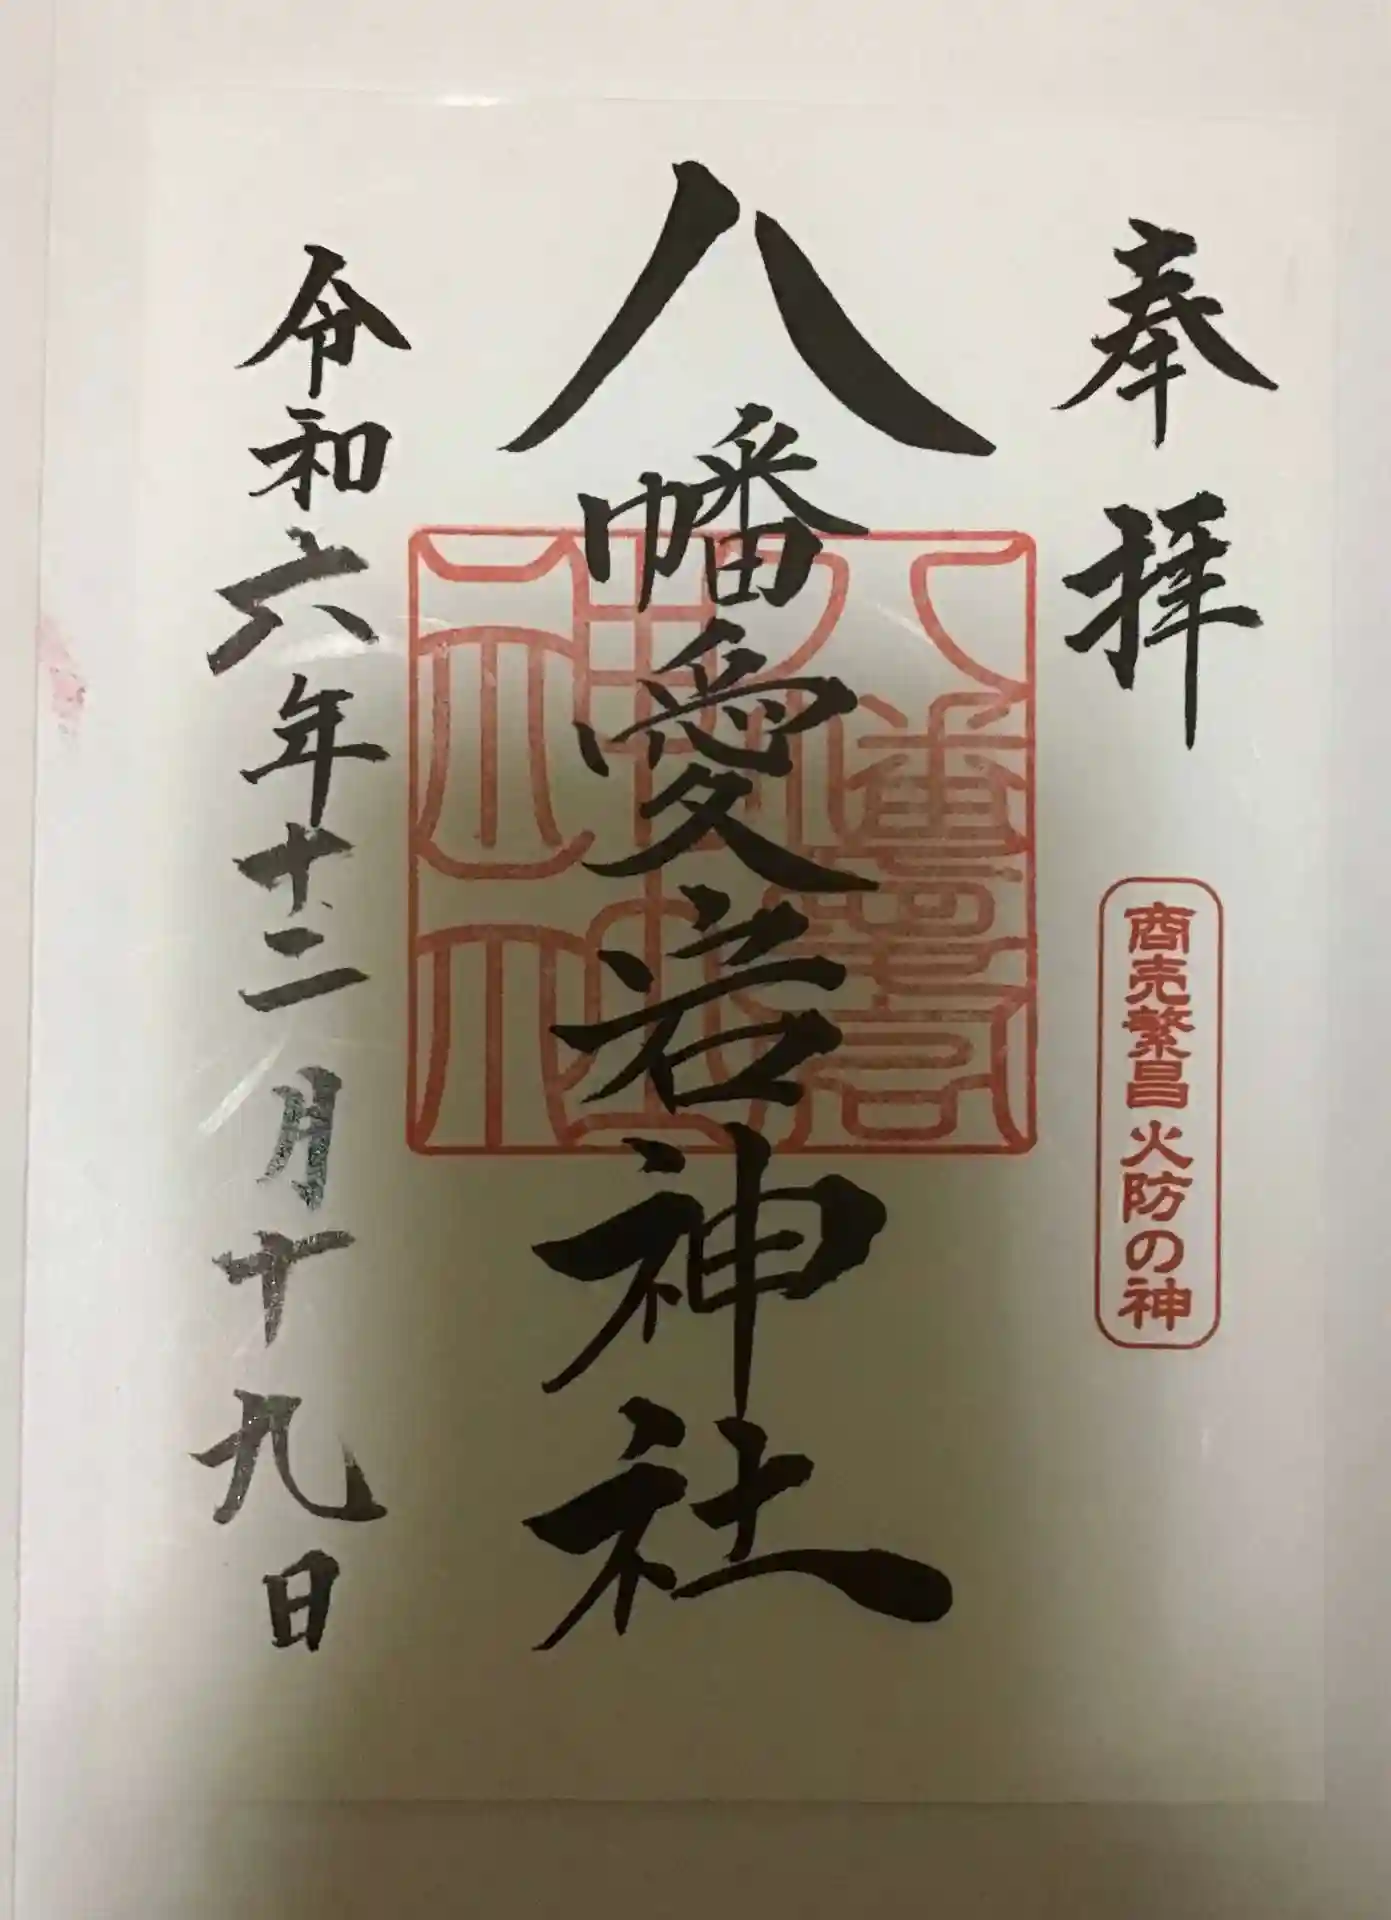 奉拝
商売繁昌 火防の神
八幡愛宕神社
八幡愛宕神社
令和六年十二月十九日